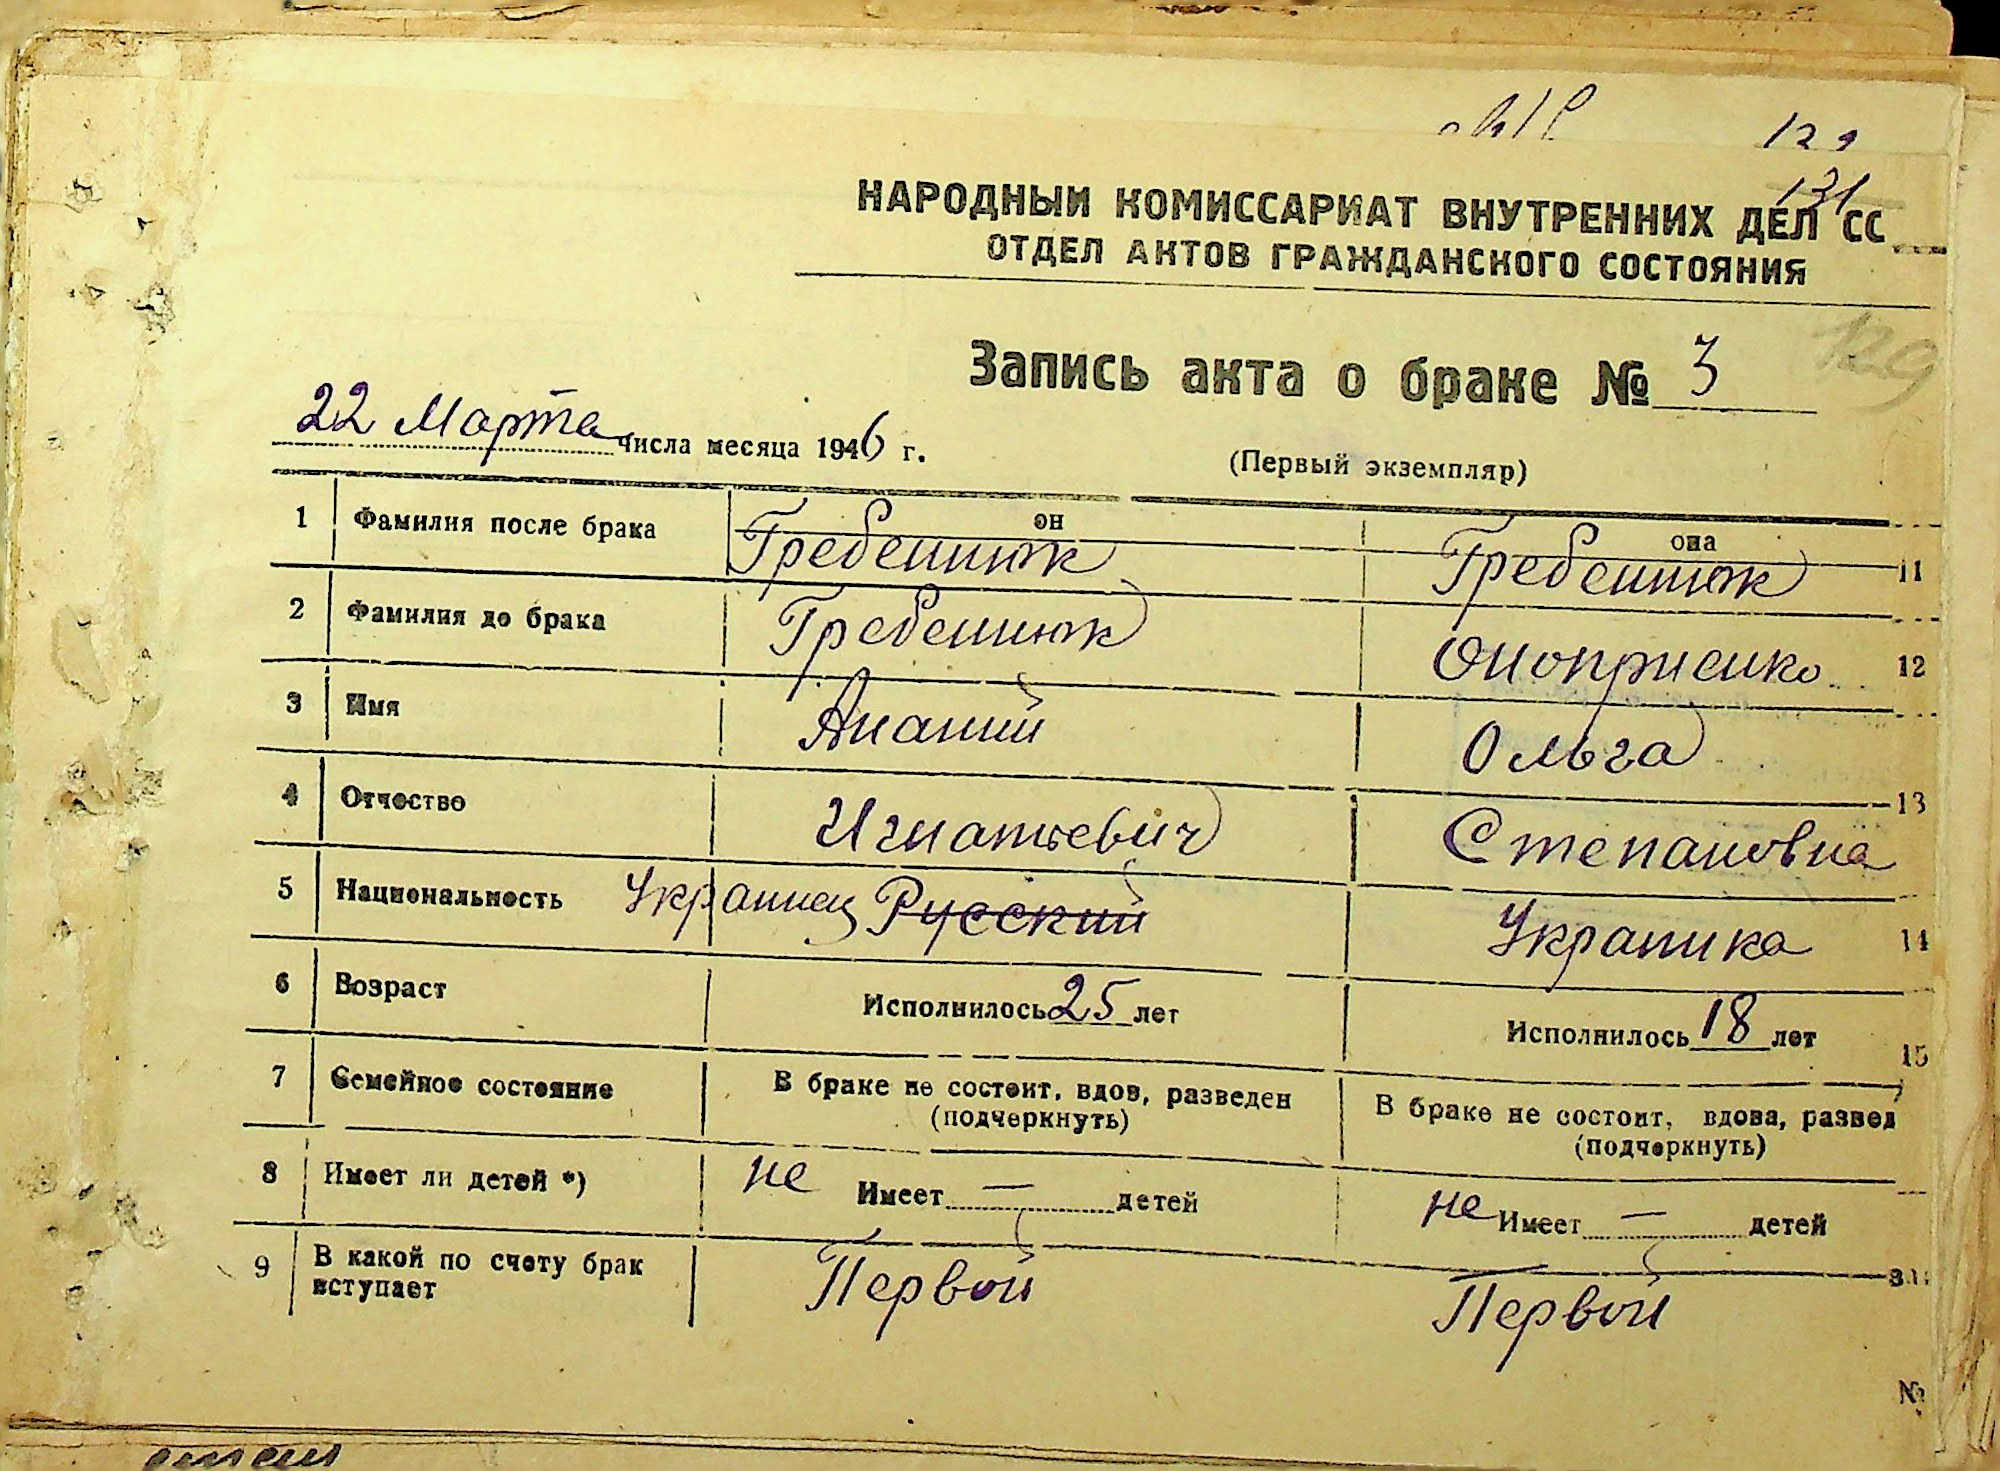 131
НАРОДНЫЙ КОМИССАРИАТ ВНУТРЕННИХ ДЕЛ СС
ОТДЕЛ АКТОВ ГРАЖДАНСКОГО СОСТОЯНИЯ
129
Запись акта о браке № 3
22 Марта числа месяца 1946 г.
(Первый экземпляр)
он она
1 Фамилия после брака Гребенюк Гребенюк 11
2 Фамилия до брака Гребенюк Оноприенко 12
3 Имя Ананий Ольга
4 Отчество Игнатьевич Степановна 13
5 Национальность Украинец Русский Украинка 14
6 Возраст Исполнилось 25 лет Исполнилось 18 лет 15
7 Семейное состояние В браке не состоит, вдов, разведен В браке не состоит, вдова, развед
(подчеркнуть) (подчеркнуть)
8 Имеет ли детей *) не Имеет — детей не Имеет — детей
9 В какой по счету брак Первой Первой
вступает
№